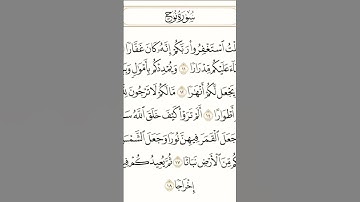 سُورَةُ نُوحٍ
ٱسْتَغْفِرُوا۟ رَبَّكُمْ إِنَّهُۥ كَانَ غَفَّارًا
عَلَيْكُم مِّدْرَارًا ١١ وَيُمْدِدْكُم بِأَمْوَٰلٍ
يَجْعَل لَّكُمْ أَنْهَٰرًا ١٢ مَّا لَكُمْ لَا تَرْجُونَ
أَطْوَارًا ١٤ أَلَمْ تَرَوْا۟ كَيْفَ خَلَقَ ٱللَّهُ
جَعَلَ ٱلْقَمَرَ فِيهِنَّ نُورًا وَجَعَلَ ٱلشَّمْسَ
كُم مِّنَ ٱلْأَرْضِ نَبَاتًا ١٧ ثُمَّ يُعِيدُكُمْ
إِخْرَاجًا ١٨